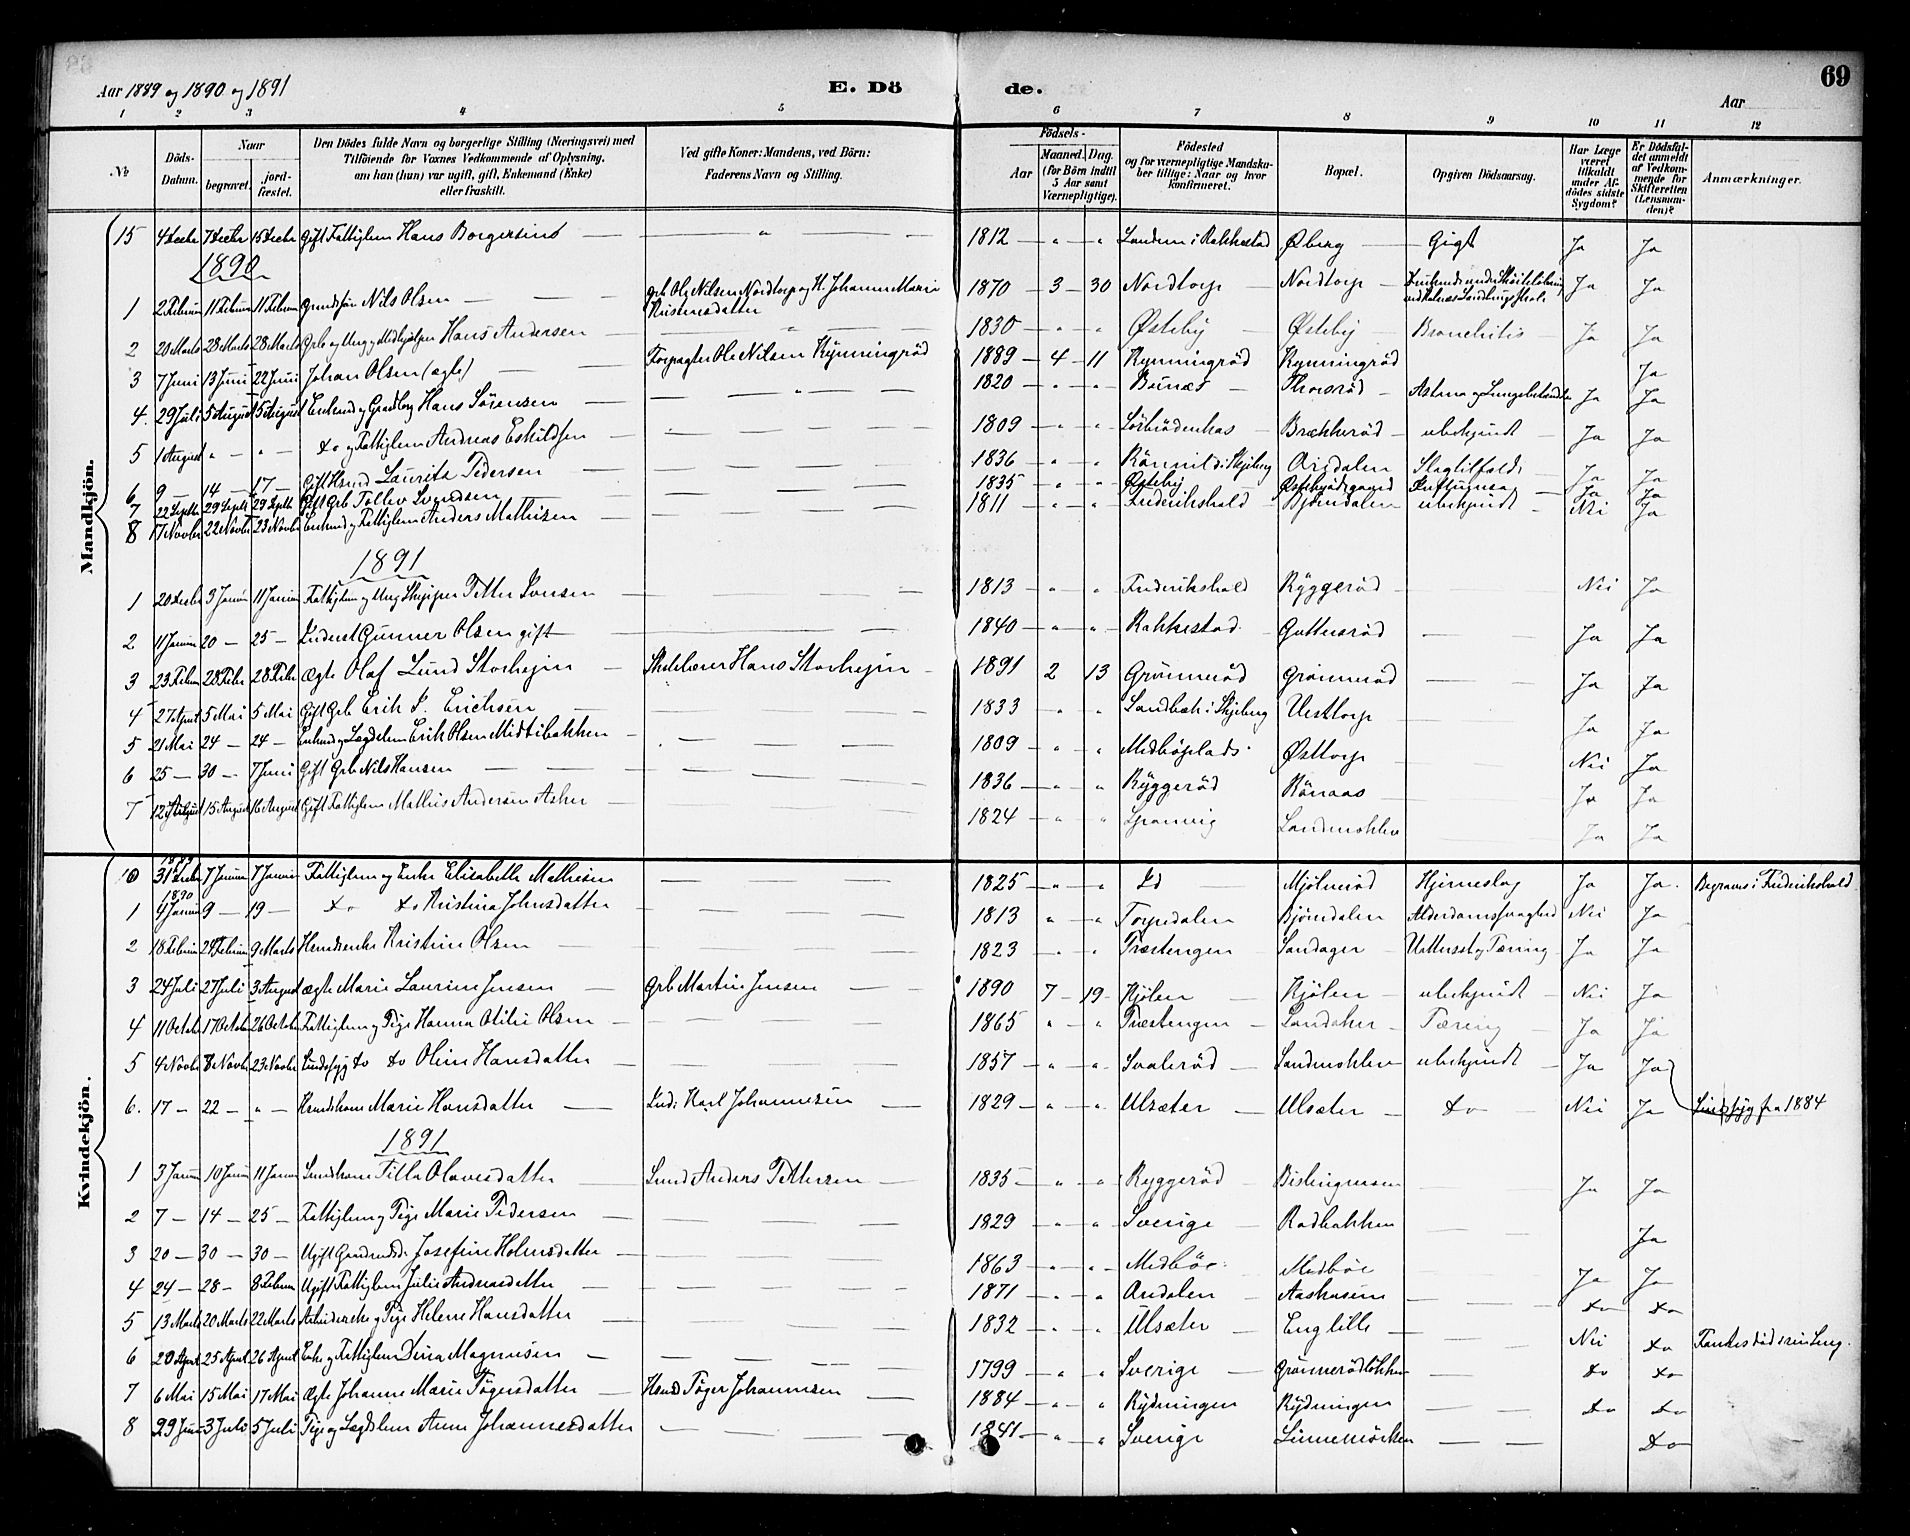 69
Aar 1889 og 1890 og 1891 E. Dö de. Aar
1 2 3 4 5 6 7 8 9 10 11 12
№ Döds-Datum. Naar begravet. jordfæstet. Den Dödes fulde Navn og borgerlige Stilling (Næringsvei) med Tilföiende for Voxnes Vedkommende af Oplysning, om han (hun) var ugift, gift, Enkemand (Enke) eller fraskilt. Ved gifte Koner: Mandens, ved Börn: Faderens Navn og Stilling. Födsels- Aar Maaned. Dag. (for Börn indtil 5 Aar samt Værnepligtige). Födested og for værnepligtige Mandskaber tillige: Naar og hvor konfirmeret. Bopæl. Opgiven Dödsaarsag. Har Læge været tilkaldt under Afdödes sidste Sygdom? Er Dödsfaldet anmeldt af Vedkommende for Skifteretten (Lensmanden)? Anmærkninger.
Mandkjön.
15 4 Decbr 7 Decbr 15 Decbr Gift Fattiglem Hans Borgersens — " — 1812 — " — " Landem i Rakkestad Øberg — Gigt Ja Ja
1890
1 2 Februar 11 Februar 11 Februar Gaardsøn Nils Olsen — Grb Ole Nilsen Nordtorp og H. Johanne Marie Kristensdatter 1870 — 3 — 30 Nordtorp — Nordtorp — Ja Ja
2 20 Marts 28 Marts 28 Marts Grb og Hans Andersen — " — 1830 — " — " Østeby — Østeby — Bronchitis — Ja Ja
3 7 Juni 13 Juni 22 Juni Johan Olsen (ægte) — Forpagter Ole Nilsen Rynningröd 1889 — 4 — 11 Rynningröd Rynningröd Ja
4. 29 Juli 5 August 15 August Enkemd og Gaardbrg Hans Sörensen — " — 1820 — " — " Bunæs — Thorsröd — Astma og Ja Ja
5 1 August " — " — do og Fattiglem Andreas Eskildsen — 1809 — " — " Brækkeröd — ubekjendt — Ja Ja
6 9 — 14 — 17 — Gift Hsmd Laurits Pedersen — 1836 — " — " i Skjeberg Arisdalen Slagtilfælde Ja Ja
7 22 Septbr 29 Septbr 29 Septbr Gift Grb Tollev Svendsen — 1835 — " — " Østeby Ja Ja
8 17 Novbr 22 Novbr 23 Novbr Enkemd og Fattiglem Anders Mathisen — 1811 — " — " Frederikshald — Bjørndalen ubekjendt — Nei Ja
1891
1 20 Decbr 3 Januar 11 Januar Fattiglem og Petter Svensen — 1813 — " — " Frederikshald Ryggeröd — Nei Ja
2 11 Januar 20 — 25 — Inderst Gunner Olsen gift — 1840 — " — " Rakkestad Guttersröd — Ja Ja
3 23 Februar 28 Febr 28 Febr Ægte Olaf Lund Storhejin — Skolelærer Hans Storhejin — 1891 2 13 Grönneröd Grönneröd — Ja Ja
4 27 April 5 Mai 5 Mai Gift Grb Erik P. Erichsen — 1833 " " Sandbæk i Skjeberg Vesttorp — Ja Ja
5 21 Mai 24 — 24 — Enkemd og Lægdslem Erik Olsen Midtibakken — 1809 — " — " Medböplads. Østtorp — Nei Ja
6 25 — 30 — 7 Juni Gift Grb Nils Hansen — 1836 — " — " Ryggeröd — Rönaas — Ja Ja
7 12 August 15 August 16 August Gift Fattiglem Mathias Andersen Asker — 1824 — " " Sponvig Sandmokken — Ja Ja
Kvindekjön.
10 31 Decbr 7 Januar 7 Januar Fattiglem og Enke Elisabeth Mathisen — 1825 — " — " Id — Mjölneröd Hjerneslag Ja Ja. Begraves i Frederikshald
1890
1 4 Januar 9 — 19 — do do Kristina Johnsdatter — 1813 " — " Torpedalen Bjørndalen Alderdomssvaghed Nei Ja
2 18 Februar 24 Februar 9 Marts Husmdsenke Kristine Olsen — 1823 — " — " Træstengen Sandager — Vattersot og Tæring Ja Ja
3 24 Juli 27 Juli 3 August ægte Marie Laurine Jensen — Grb Martin Jensen — 1890 7 — 19 — Kjölen — Kjölen — ubekjendt — Nei Ja
4 11 Octob 17 Octob 26 Octob Fattiglem og Pige Hanna Otilie Olsen — 1865 " — " Træstengen — Sandaker — Tæring — Ja Ja
5 4 Novbr 8 Novbr 23 Novbr Sindssyg do do Oline Hansdatter — 1857 — " — " Svaleröd — Sandmokken — ubekjendt — Ja Ja
6. 17 — 22 — " — Husmdskone Marie Hansdatter — Ind: Karl Johannesen — 1829 — " — " Ulsæter — Ulsæter — do — Nei Ja Sindssyg fra 1884
1891
1 3 Januar 10 Januar 11 Januar Pilla Olavesdatter — Anders Pettersen — 1835 — " — " Ryggeröd — Bislingmosen Ja Ja
2 7 — 14 — 25 — Fattiglem og Pige Marie Pedersen — 1829 — " — " Sverige — Rødbakken — Ja
3 20 — 30 — 30 — Ugift Josefine Holmsdatter — 1863 — " — " Medböe — Medböe Ja Ja
4 24 — 28 — 8 Februar Ugift Fattiglem Julie Andreasdatter — 1871 " " Arisdalen — Aashusene — do do
5 13 Marts 20 Marts 22 Marts Arbeiderske og Pige Helene Hansdatter — 1832 — " — " Ulsæter — Englille — Nei do
6 20 April 25 April 26 April Enke og Fattiglem Dina Magnusen — 1799 — " — " Sverige — Grönnerödlökken do do
7 6 Mai 15 Mai 17 Mai Ægte Johanne Marie Tögersdatter — Hsmd Töger Johannesen — 1884 — " — " Rydningen Rydningen — do do
8 29 Juni 3 Juli 5 Juli Pige og Lægdslem Anne Johannesdatter — 1841 — " — " Sverige — Linnemörken — do